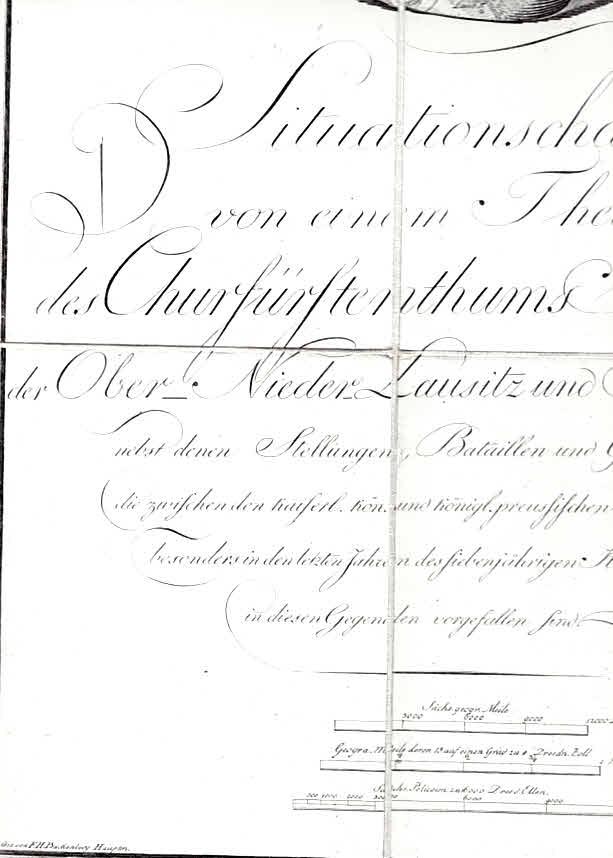 Situationscha
von einem The
des Churfürstenthums
der Ober- Nieder-Lausitz und
nebst denen Stellungen, Bataillen und G
die zwischen den Kaiserl. Kön. und Königl. preussischen
besonders in den letzten Jahren des siebenjährigen K
in diesen Gegenden vorgefallen sind.
Sächs. geogr. Meile
3000 6000 9000 12000
Geogra. Meile deren 15 auf einen Grad zu Dresdn. Zoll
Sächs. Policem zu 16000 Dresd. Ellen.
500 1000 2000 3000 6000 9000
F. H. Backenberg Hauptm.